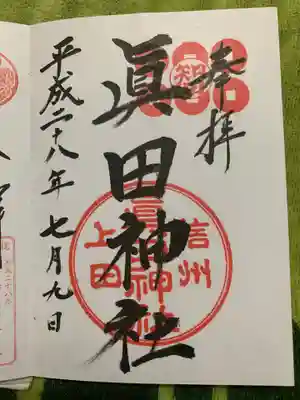 奉拝
智
眞田神社
信州
上田
眞田神社
平成二十八年七月九日